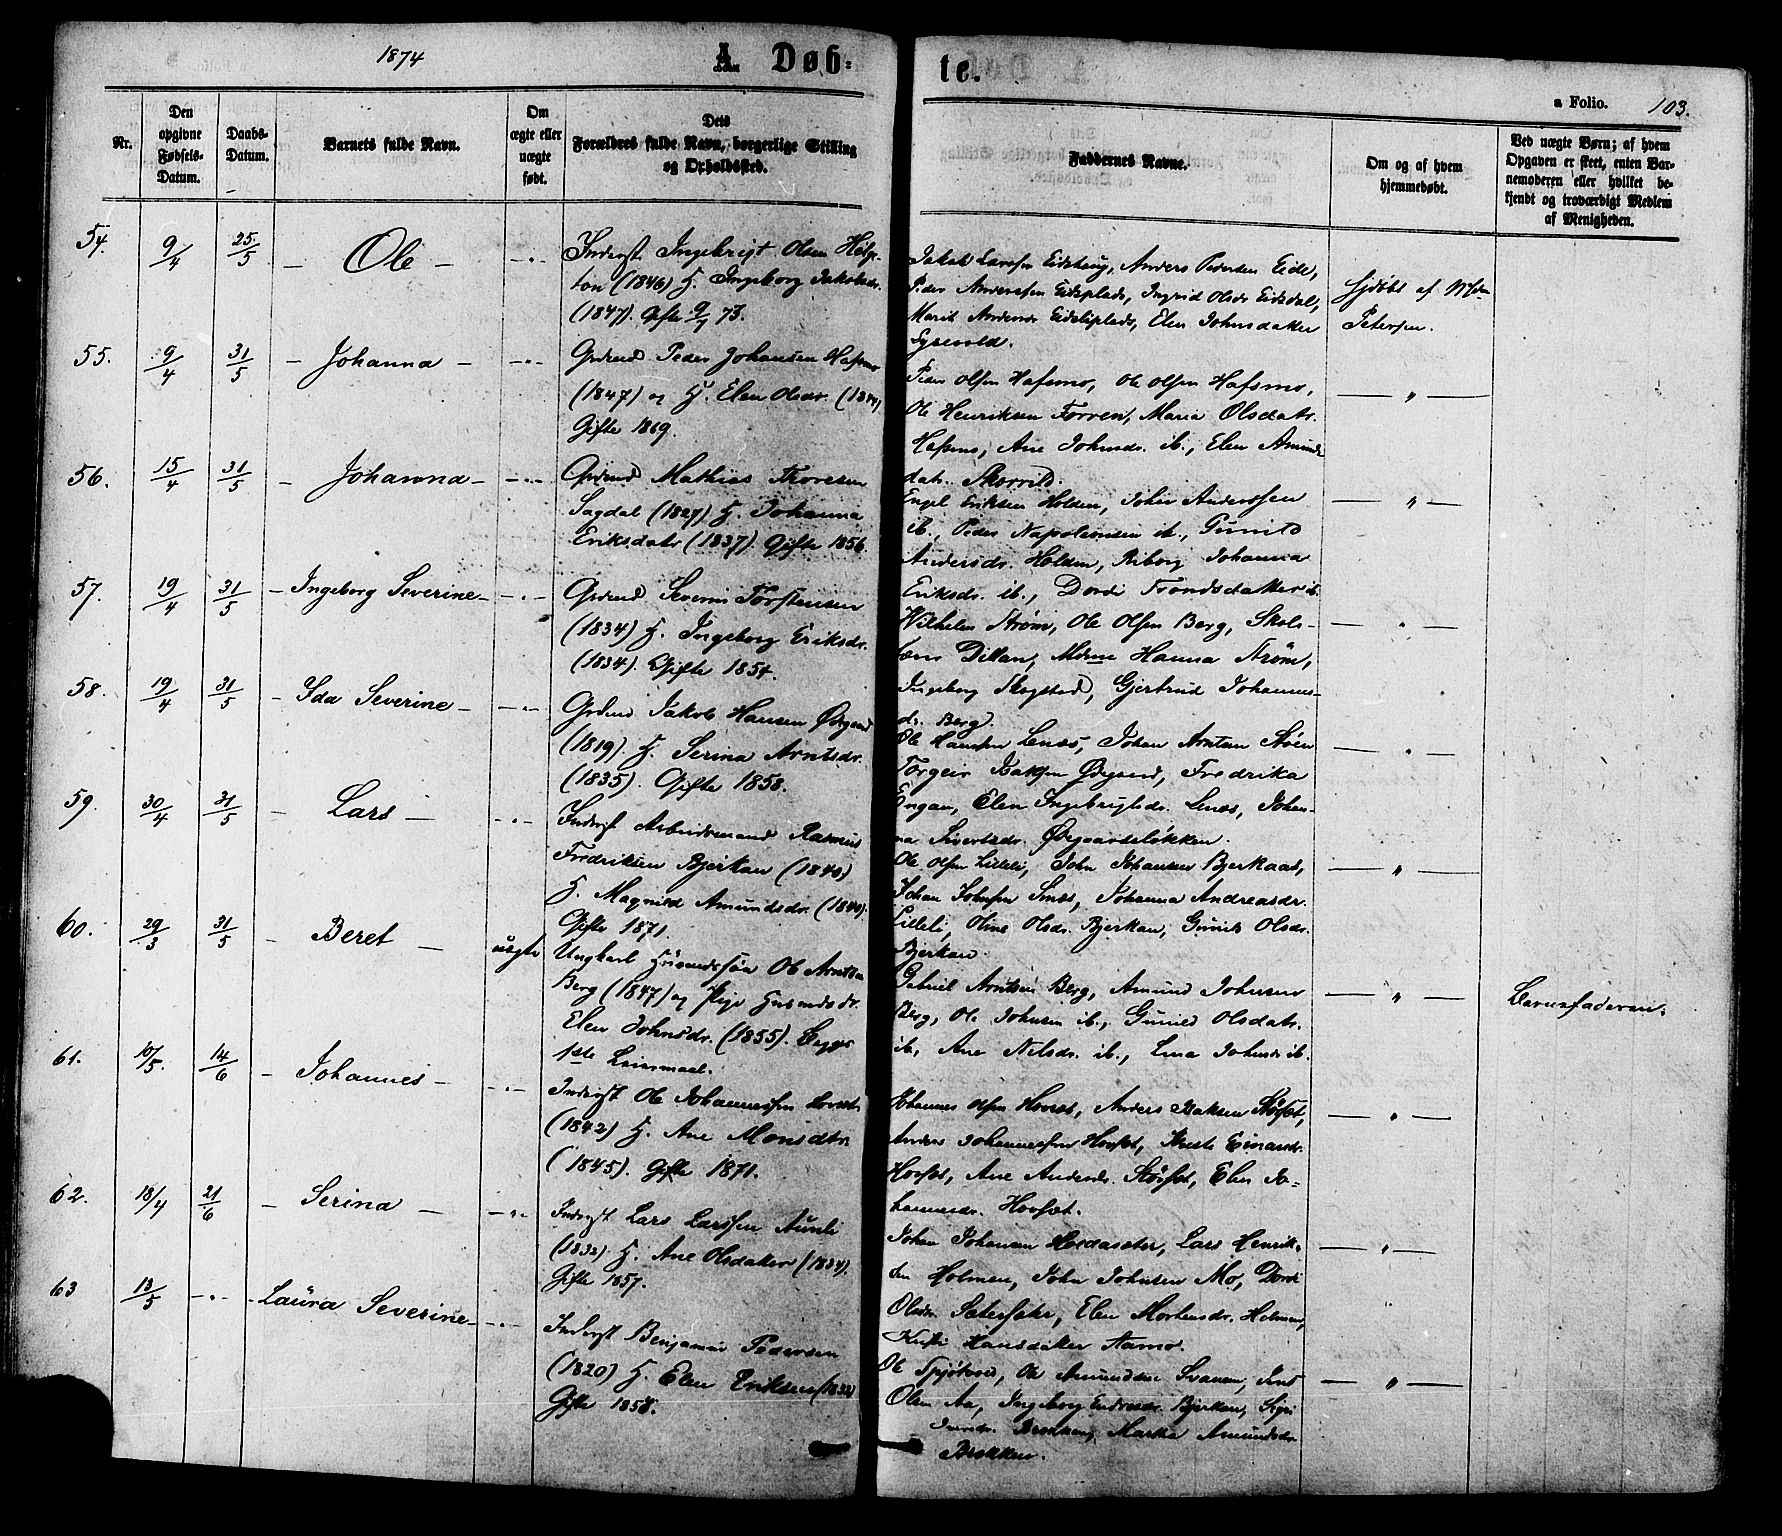 1874
A. Døb-
te.
a Folio. 103.
Nr.
Den opgivne Fødsels-Datum.
Daabs-Datum.
Barnets fulde Navn.
Om ægte eller uægte født.
Dets Forældres fulde Navn, borgerlige Stilling og Opholdssted.
Faddernes Navne.
Om og af hvem hjemmedøbt.
Ved uægte Børn; af hvem Opgaven er skeet, enten Barnemoderen eller hvilket bekjendt og troværdigt Medlem af Menigheden.
54. 9/4 25/5 - Ole - -"-
Inderst Ingebrigt Olsen
(1846) H. Ingeborg Jakobsdr.
(1847). Gifte 73.
Jakob Larssen Eidshaug, Anders Pedersen Eide,
Peder Anderssen Eidsplads, Ingrid Olsdr Eidsdal,
Marit Andersdr Eidsliplads, Elen Johnsdatter
Hjdøbt af
Petersen.
55. 9/4 31/5 - Johanna - -"-
Grdmd Peder Johansen Hafsmo
(1847) og H. Elen Olsdr. (1844)
Gifte 1869.
Peder Olsen Hafsmo, Ole Olsen Hafsmo,
Ole Henriksen Forren, Maria Olsdatr.
Hafsmo, Ane Johnsdr. ib., Elen Amunds-
datr. Skorrild.
— " —
56. 15/4 31/5 - Johanna - -"-
Grdmd Mathias Thoresen
Sagdal (1827) H. Johanna
Eriksdatr (1837). Gifte 1856.
Engel Eriksen Holden, John Anderssen
ib., Peder Napoleonsen ib., Gunild
Andersdr. Holden, Johanna
Eriksdr. ib., Dordi Trondsdatter ib.
— " —
57. 19/4 31/5 - Ingeborg Severine - -"-
Grdmd Severin Torstensen
(1834) H. Ingeborg Eriksdr.
(1834). Gifte 1854.
Vilhelm Strøm, Ole Olsen Berg, Skole-
Dillan, Mdme Hanna Strøm,
Ingeborg Skogstad, Gjertrud Johannes-
dr. Berg.
— " —
58. 19/4 31/5 - Ida Severine - -"-
Grdmd Jakob Hansen Øvregaard
(1819) H. Serina Arntsdr.
(1835). Gifte 1858.
Ole Hansen Lenæs, Johan Arntsen
Torgeir Isaksen Fredrika
Engan, Elen Ingebrigtsdr. Lenæs, Johan-
na Sivertsdr.
— " —
59. 30/4 31/5 - Lars - -"-
Inderst Arbeidsmand Rasmus
Fredriksen Bjerkan (1840)
H. Magnild Amundsdr. (1840).
Gifte 1871.
Ole Olsen Lilleli, John Johansen Bjerkaas,
Johan Johnsen Johanna Andreasdr.
Lilleli, Oline Olsdr. Bjerkan, Gunild Olsdr.
Bjerkan.
— " —
60. 29/3 31/5 - Beret - uægte
Ungkarl Husmandssøn Ole Arntsen
Berg (1847) og Pige Husmandsdr.
Elen Johnsdr. (1855). Begges
1ste Leiermaal.
Gabriel Arntsen Berg, Amund Johnsen
Berg, Ole Johnsen ib., Gunild Olsdatr.
ib., Ane Nilsdr. ib., Lina Johnsdr ib.
— " —
Barnefaderen.
61. 10/5. 14/6 - Johannes - -"-
Inderst Ole Johannessen
(1842) H. Ane Monsdtr.
(1845). Gifte 1871.
Johannes Olsen Anders Isaksen
Anders Johannessen Hovsæt, Einarsdr.
Hovsæt, Ane Andersdr. Elen Jo-
hannesdr. Hovsæt.
— " —
62. 18/4 21/6 - Serina - -"-
Inderst Lars Larssen Aunli
(1832) H. Ane Olsdatter (1834).
Gifte 1857.
Johan Johansen Lars Henrik-
sen Holmen, John Johnsen Mo, Dordi
Olsdr. Elen Mortensdr. Holmen,
Hansdatter Aamo.
— " —
63 13/5 -"- - Laura Severine - -"-
Inderst Benjamin Pedersen
(1820) H. Elen Eriksen (1832)
Gifte 1858.
Ole Ole Amundsen Svanem, Jens
Olsen Aa, Ingeborg Endresdr. Bjerkan,
Brækken, Martha Amundsdr.
Brækken.
— " —